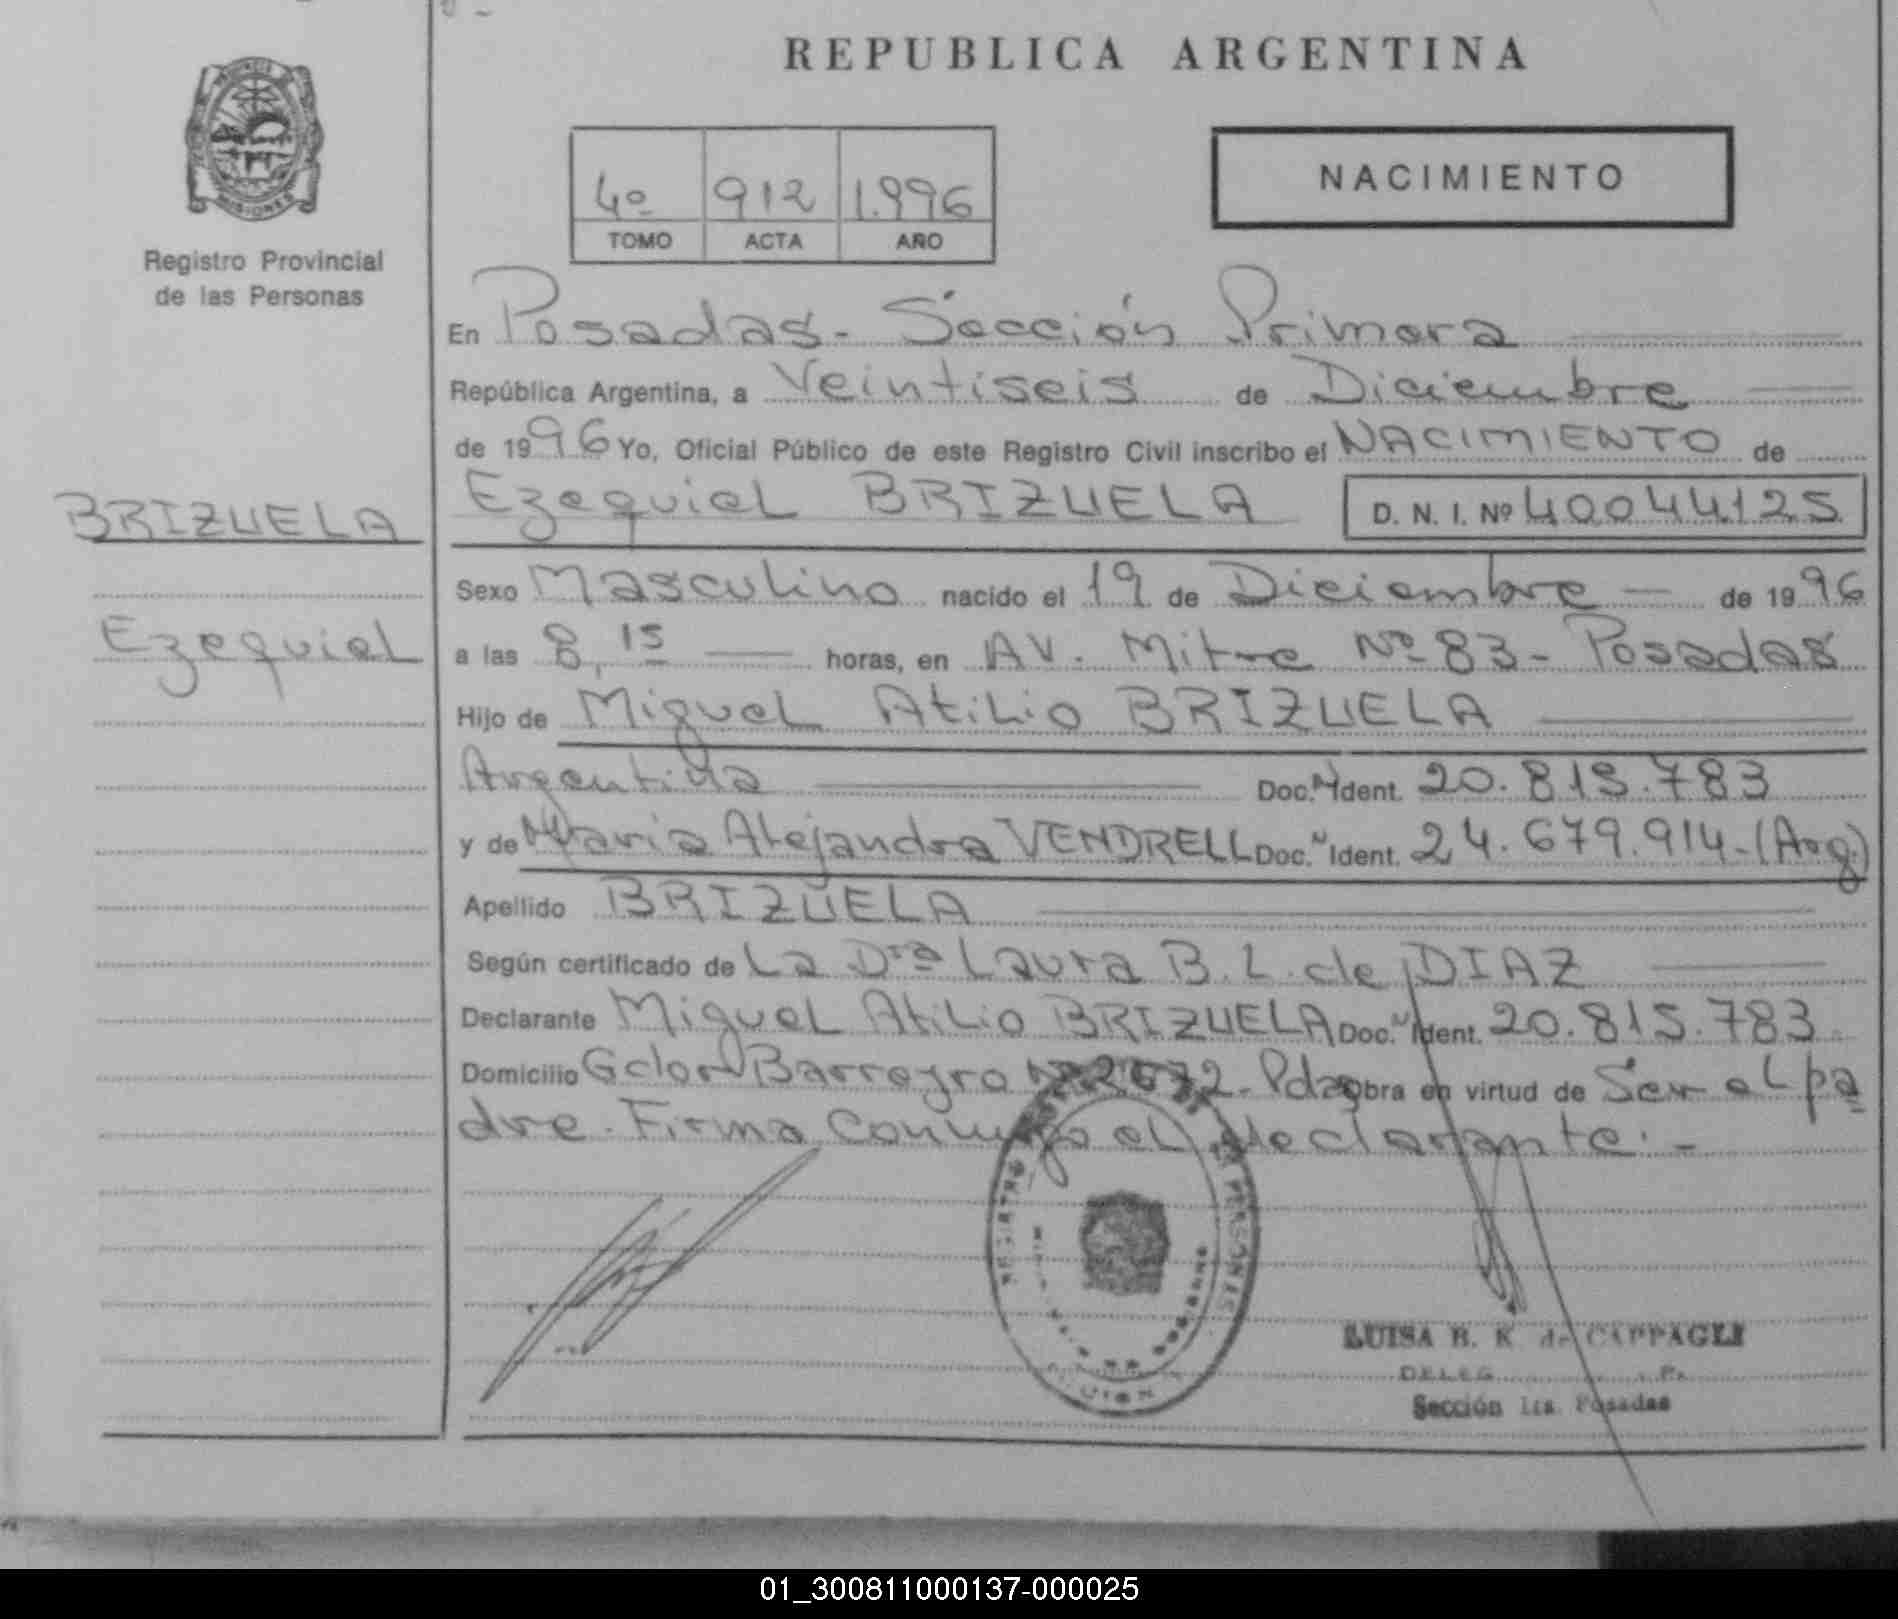 REPUBLICA ARGENTINA
MISIONES
Registro Provincial
de las Personas
4º 912 1.996
TOMO ACTA AÑO
NACIMIENTO
En Posadas - Sección Primera
República Argentina, a Veintiseis de Diciembre
de 1996 Yo, Oficial Público de este Registro Civil inscribo el NACIMIENTO de
BRIZUELA
Ezequiel
Ezequiel BRIZUELA D. N. I. Nº 40044125
Sexo Masculino nacido el 19 de Diciembre — de 1996
a las 8,15 — horas, en AV. Mitre Nº 83 - Posadas
Hijo de Miguel Atilio BRIZUELA
Argentina Doc. N Ident. 20.815.783
y de Maria Alejandra VENDRELL Doc. N Ident. 24.679.914 - (Arg.)
Apellido BRIZUELA
Según certificado de La Drª Laura B. L. de DIAZ
Declarante Miguel Atilio BRIZUELA Doc. N Ident. 20.815.783
Domicilio Barreyro Nº 2672 - Pdas obra en virtud de Ser el pa
dre. Firma conmigo el declarante. -
LUISA B. K. de CAPPAGLI
DELEG
Sección 1ra. Posadas
01_300811000137-000025